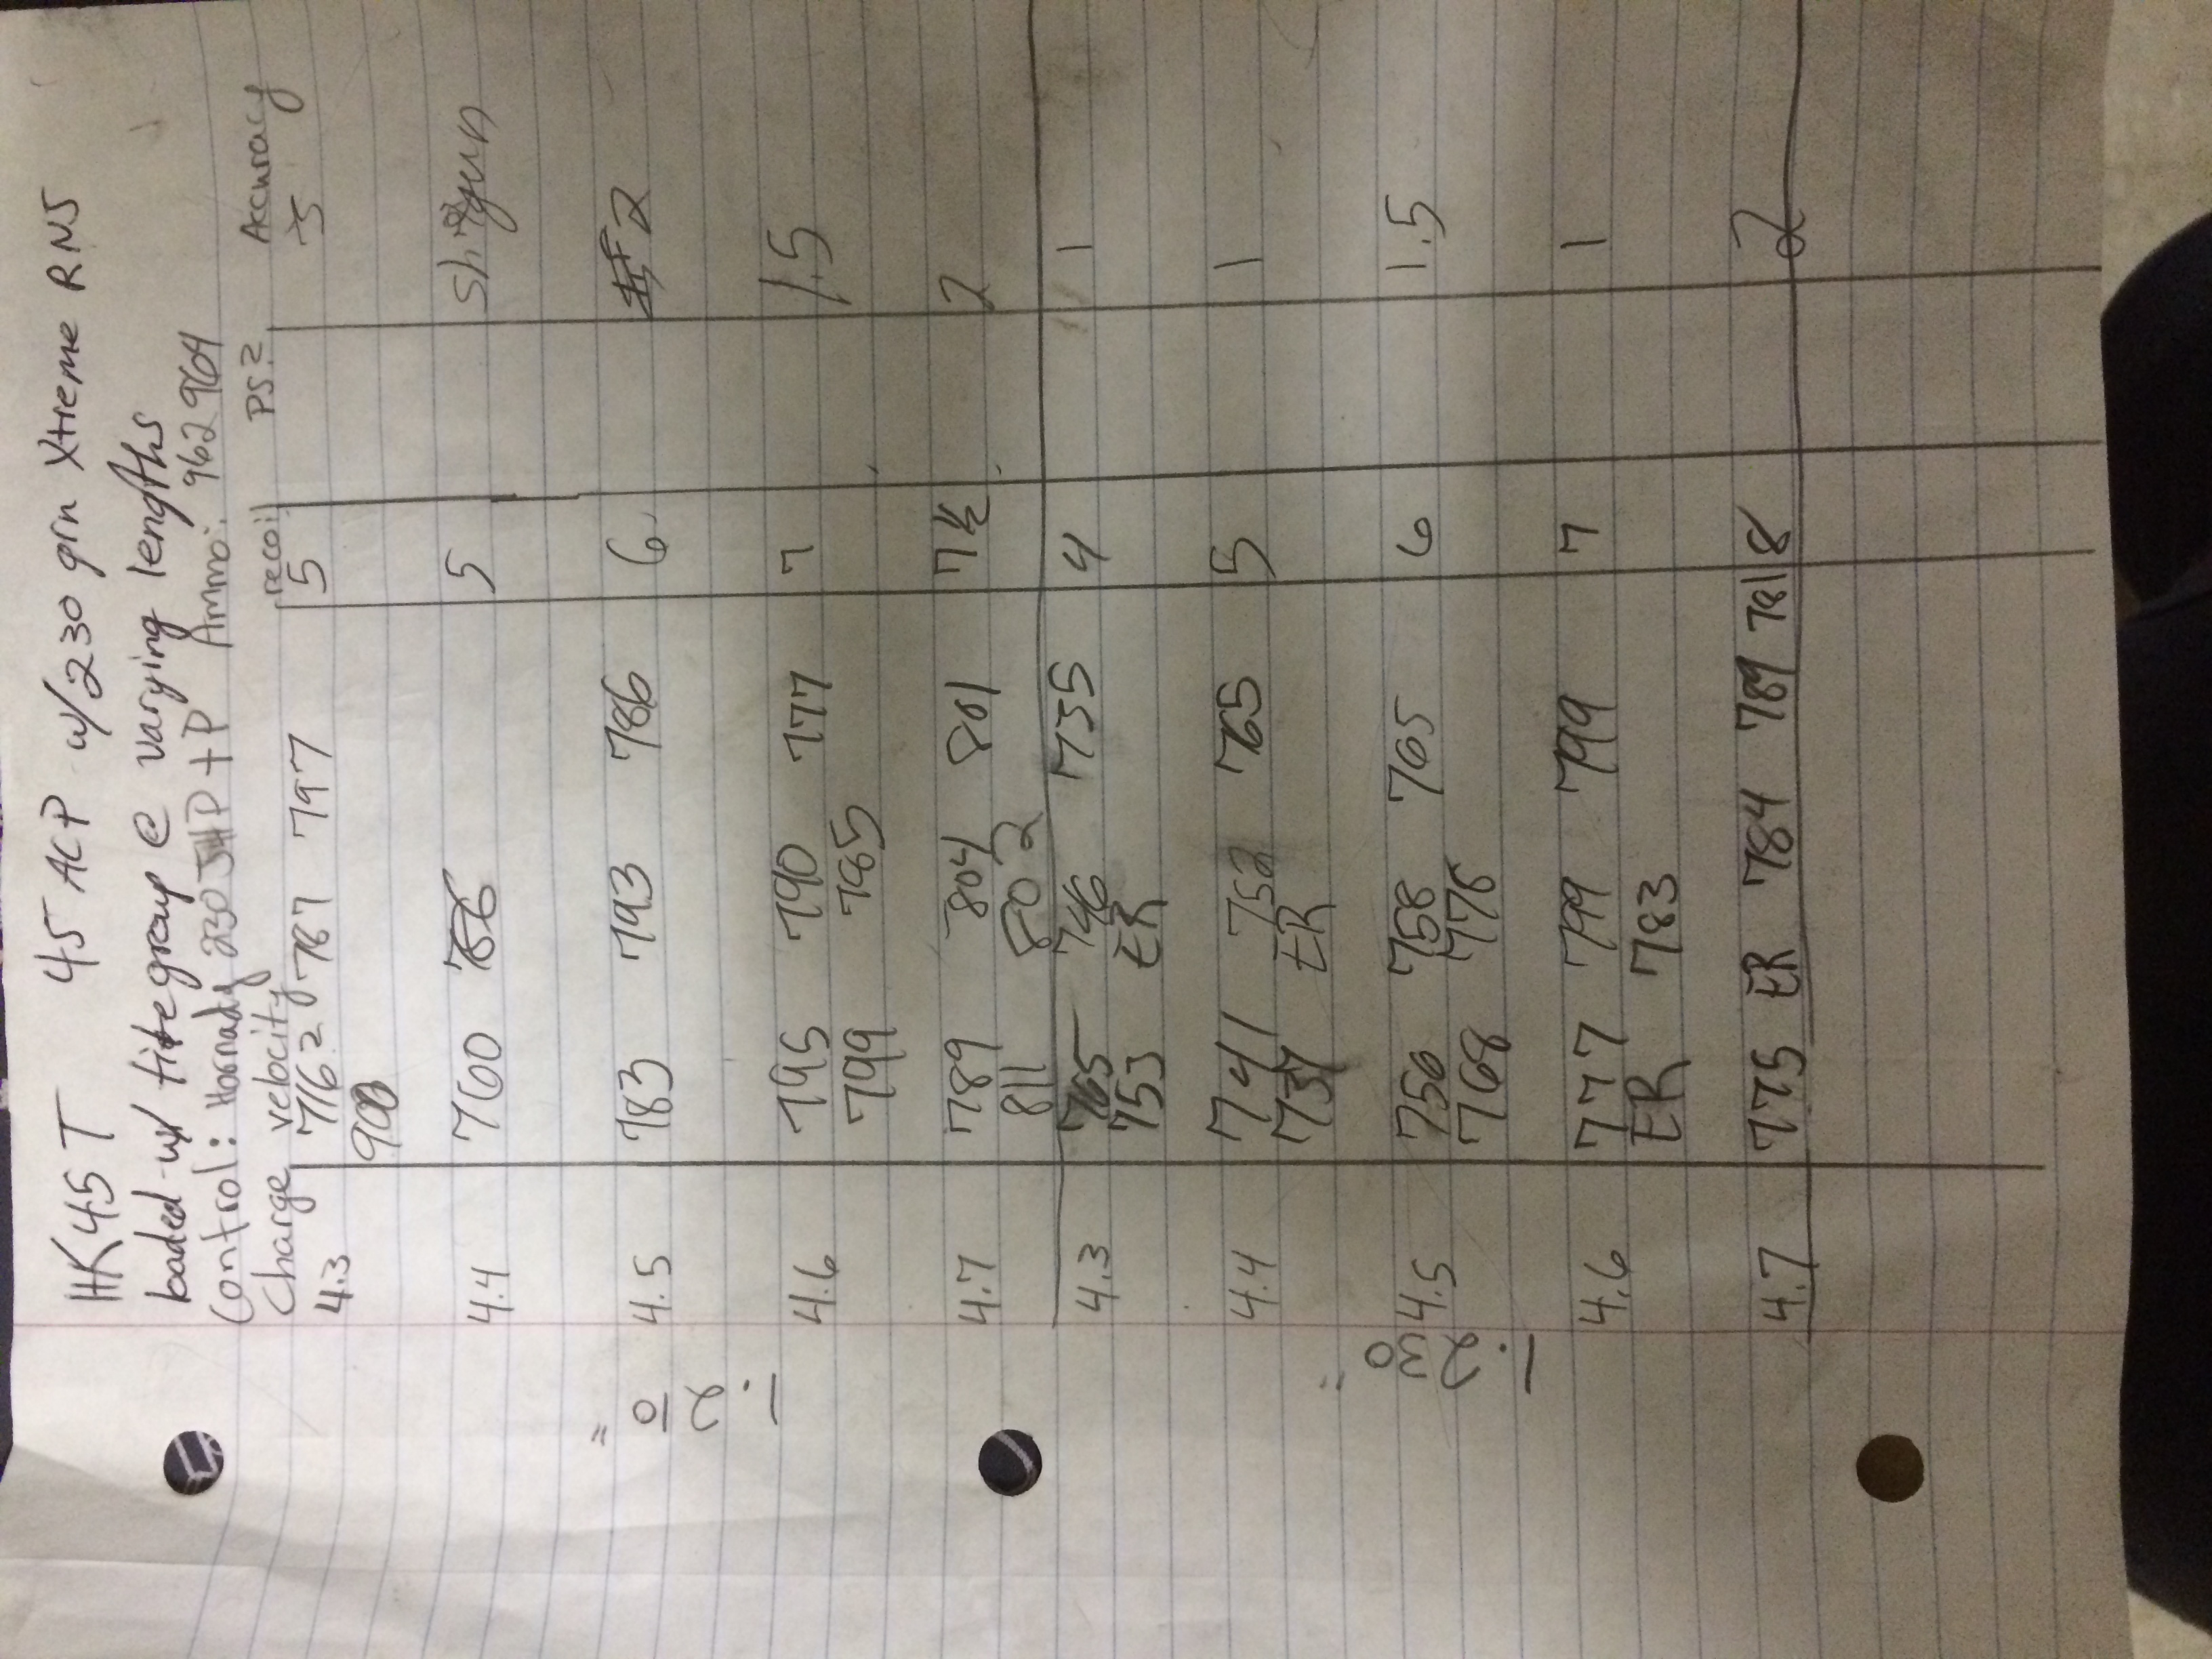 HK45T 45 ACP w/230 grn Xtreme RNS
loaded w/ titegroup @ varying lengths
Control: Hornady 230 JHP +P Ammo: 962 964
Charge velocity recoil PS? Accuracy
4.3 762 787 797 5
900
4.4 760 5 shotgun
4.5 783 793 786 6 2
4.6 795 790 777 7 1.5
799 785
4.7 789 804 801 7½ 2
811 802
1.20"
4.3 765 746 735 4 1
753 ER
4.4 741 752 765 5 1
737 ER
4.5 756 758 765 6 1.5
768 778
4.6 777 799 799 7 1
ER 783
4.7 775 ER 784 789 781 8 2
1.230"